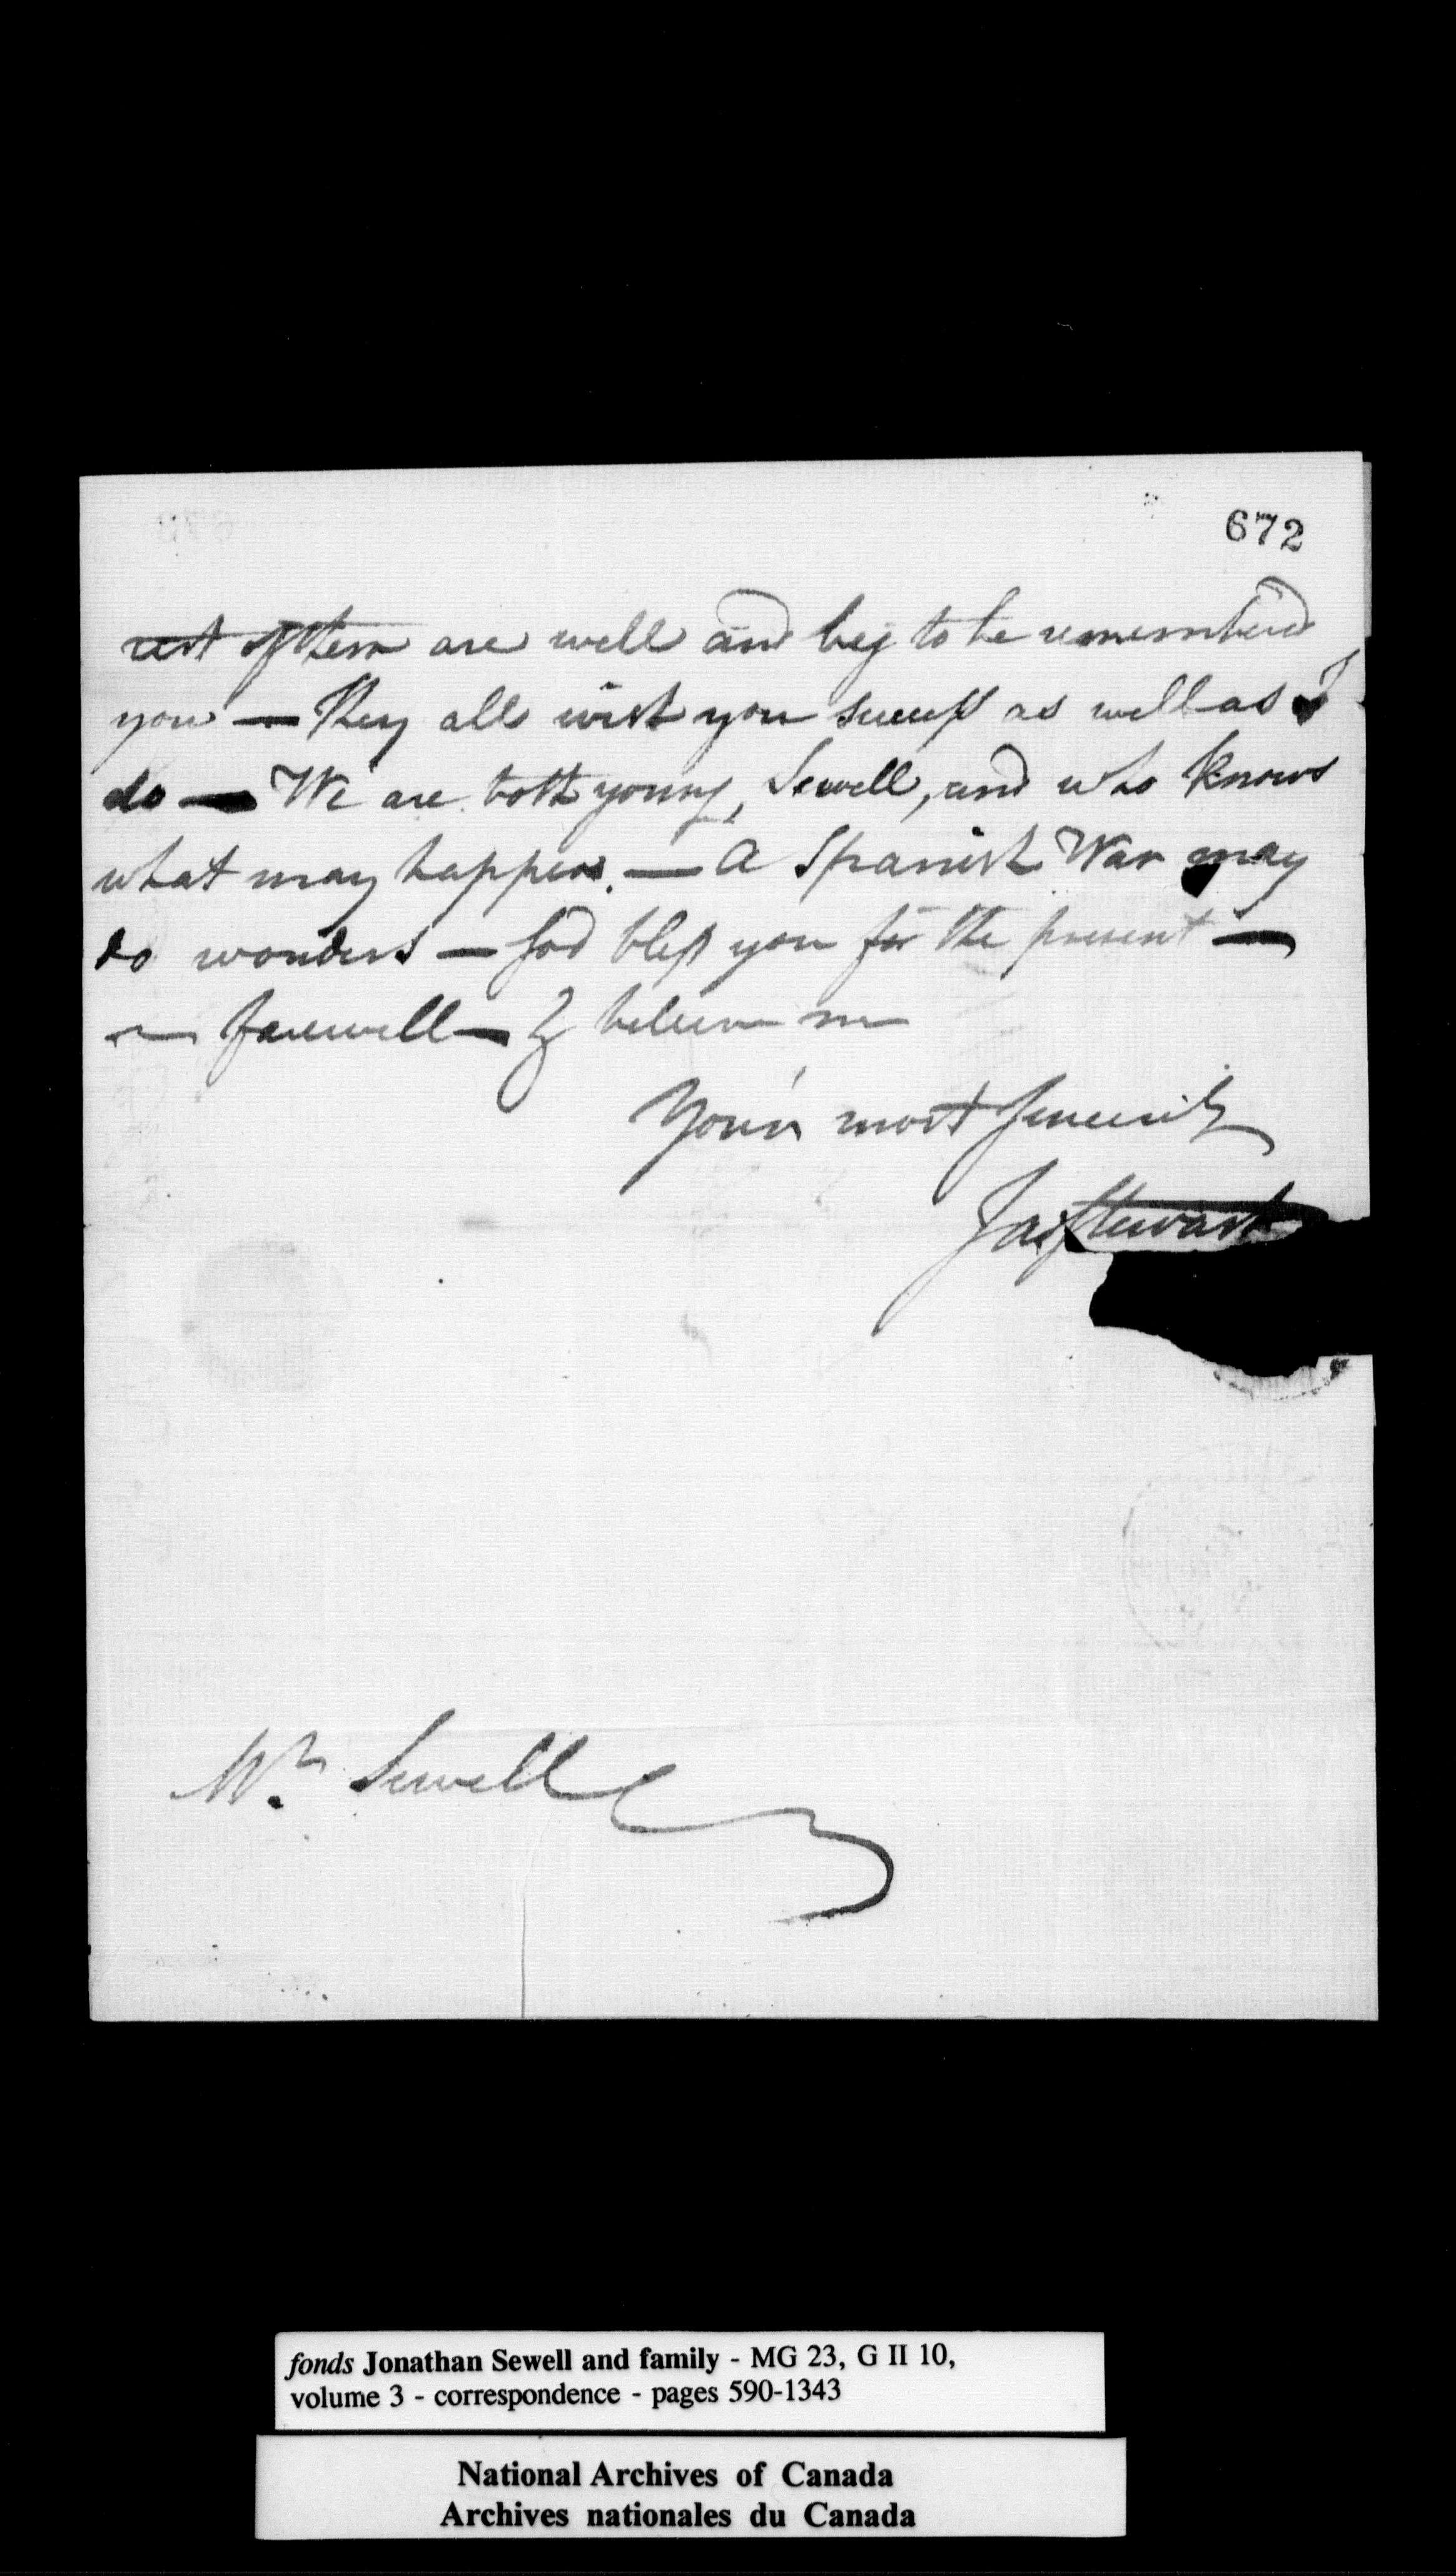 672
rest of them are well and beg to be remembered
you — They all wish you success as well as I
do — We are both young, Sewell, and who knows
what may happen. — A Spanish War may
do wonders — God bless you for the present —
— farewell — & believe me
Your's most sincerely
Jas Stewart
Mr. Sewell
fonds Jonathan Sewell and family - MG 23, G II 10,
volume 3 - correspondence - pages 590-1343
National Archives of Canada
Archives nationales du Canada